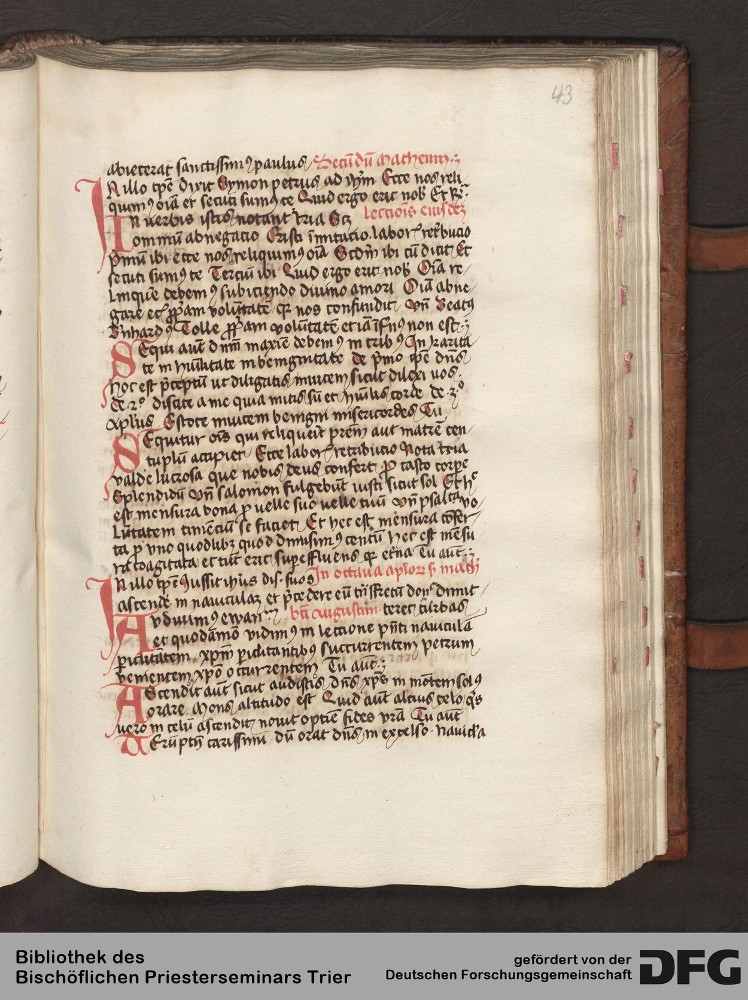 43
abieterat sanctissim9 paulus Secūdū Matheum
In illo tpe Dixit Symon petrus ad ihm Ecce nos reli
quim9 oīa et secuti sum9 te Quid ergo erit nob Et R
In verbis istis notant tria Sc lectiois eiusdez
omniū abnegatio Cristi īmitatio labor retbucio
pmū ibi ecce nos reliquim9 oīa Scdm ibi cū dicit Et
secuti sum9 te Terciū ibi Quid ergo erit nob Oīa re
linque debem9 subiciendo diuino amori Oīa abne
gare et ppam volūtatē q nos confundit vn Beat9
Bnhard9 Tolle ppam voluntatē et iā ifn9 non est
Sequi aut dnm maxie debem9 in trib9 In karita
te in huīlitate in benignitate de pmo ipe dns
Hoc est pceptū ut diligatis inuicem sicut dilexi uos
de 2o discite a me quia mitis sū et huīlis corde de 3o
xplus Estote inuicem benigni misericordes Tu
Sequitur ois qui reliquerit prem aut matrē cen
tuplū accipiet Ecce labor retributio Nota tria
valde lucrosa que nobis deus confert p casto corpe
Splendidū vn Salomon fulgebūt iusti sicut sol Et hc
est mensura bona p velle suo velle tuū vn psalta vo
lūtatem timenciū se faciet Et hec est mensura cōfer
ta p vno quodlibz quod dimisim9 centū hec est mēsu
ra coagitata et tūc erit supeffluens q etna Tu aut
In illo tpe Iussit ihus dis suos In octaua aplor s math
ascende in nauiculaz et pcedere eū tnsfretū don dimit
Audiuim9 ewan btī Augustini teret turbas
et quodāmō vidim9 in lectione pnti nauiculā
piclitātem xpm piclitantib9 succurrentem petrum
venientem xpo occurrentem Tu aut
Ascendit aut sicut audistis dns xps in mōtem sol9
orare Mons altitudo est Quid aut altius celo qs
vero in celū ascendit nouit optie fides vra Tu aut
Uerūptn carissimi dū orat dns in excelso nauicla
Bibliothek des
Bischöflichen Priesterseminars Trier
gefördert von der
Deutschen Forschungsgemeinschaft
DFG